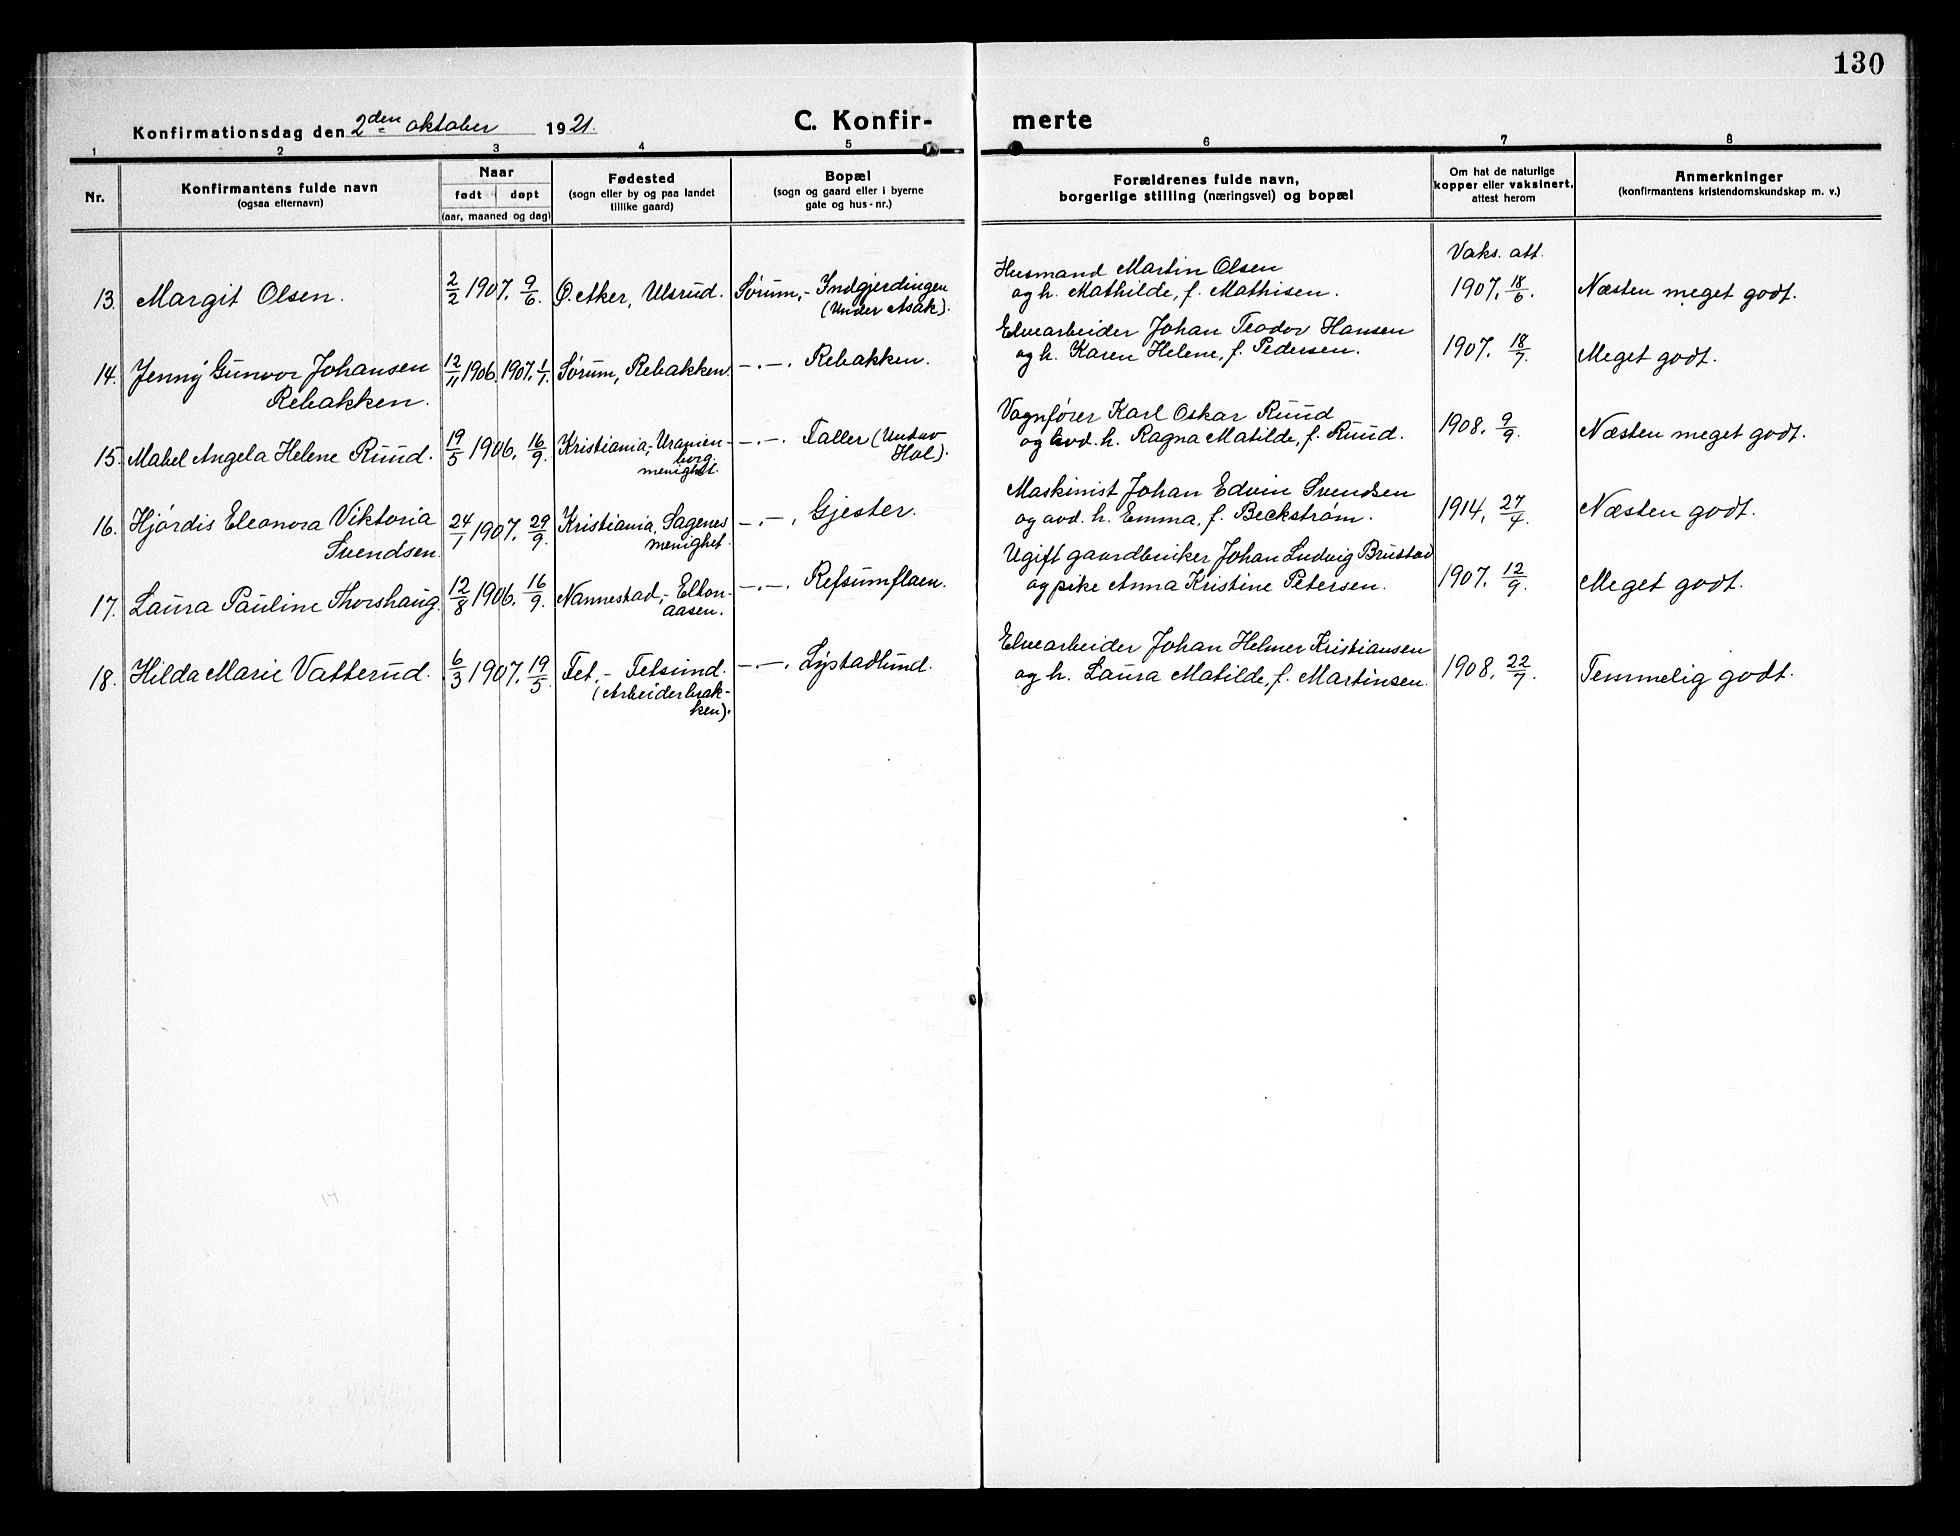 130
Konfirmationsdag den 2den oktober 1921.
C. Konfir- merte
1 2 3 4 5 6 7 8
Nr.
Konfirmantens fulde navn
(ogsaa efternavn)
Naar
født døpt
(aar, maaned og dag)
Fødested
(sogn eller by og paa landet
tillike gaard)
Bopæl
(sogn og gaard eller i byerne
gate og hus-nr.)
Forældrenes fulde navn,
borgerlige stilling (næringsvei) og bopæl
Om hat de naturlige
kopper eller vaksinert,
attest herom
Anmerkninger
(konfirmantens kristendomskundskap m. v.)
Vaks. att.
13. Margit Olsen. 2/2 1907. 9/6. Ø. Aker, Ulsrud. Sørum, - Indgjerdingen
(under Asak).
Husmand Martin Olsen
og h. Mathilde, f. Mathisen. 1907. 18/6. Næsten meget godt.
14. Jenny Gunvor Johansen
Rebakken. 12/11 1906. 1907. 1/1. Sørum, Rebakken. —.—. Rebakken.
Elvearbeider Johan Teodor Hansen
og h. Karen Helene, f. Pedersen. 1907. 18/7. Meget godt.
15. Mabel Angela Helene Ruud. 19/5 1906. 16/9. Kristiania, - Uranien-
borg
menighet. —.—. Faller (under
Hol).
Vognfører Karl Oskar Ruud
og avd. h. Ragna Matilde, f. Ruud. 1908. 9/9. Næsten meget godt.
16. Hjørdis Eleonora Viktoria
Svendsen. 24/1 1907. 29/9. Kristiania, Sagenes
menighet. —.—. Gjester.
Maskinist Johan Edvin Svendsen
og avd. h. Emma, f. Beckstrøm. 1914. 27/4. Næsten godt.
17. Laura Pauline Thorshaug. 12/8 1906. 16/9. Nannestad, - Elton-
aasen. —.—. Refsumflaen.
Ugift gaardbruker Johan Ludvig Brustad
og pike Anna Kristine Petersen. 1907. 12/9. Meget godt.
18. Hilda Marie Vatterud. 6/3 1907. 19/5. Fet. - Fetsund.
(Arbeiderbrak-
ken). —.—. Lystadlund.
Elvearbeider Johan Helmer Kristiansen
og h. Laura Matilde, f. Martinsen. 1908. 22/7. Temmelig godt.